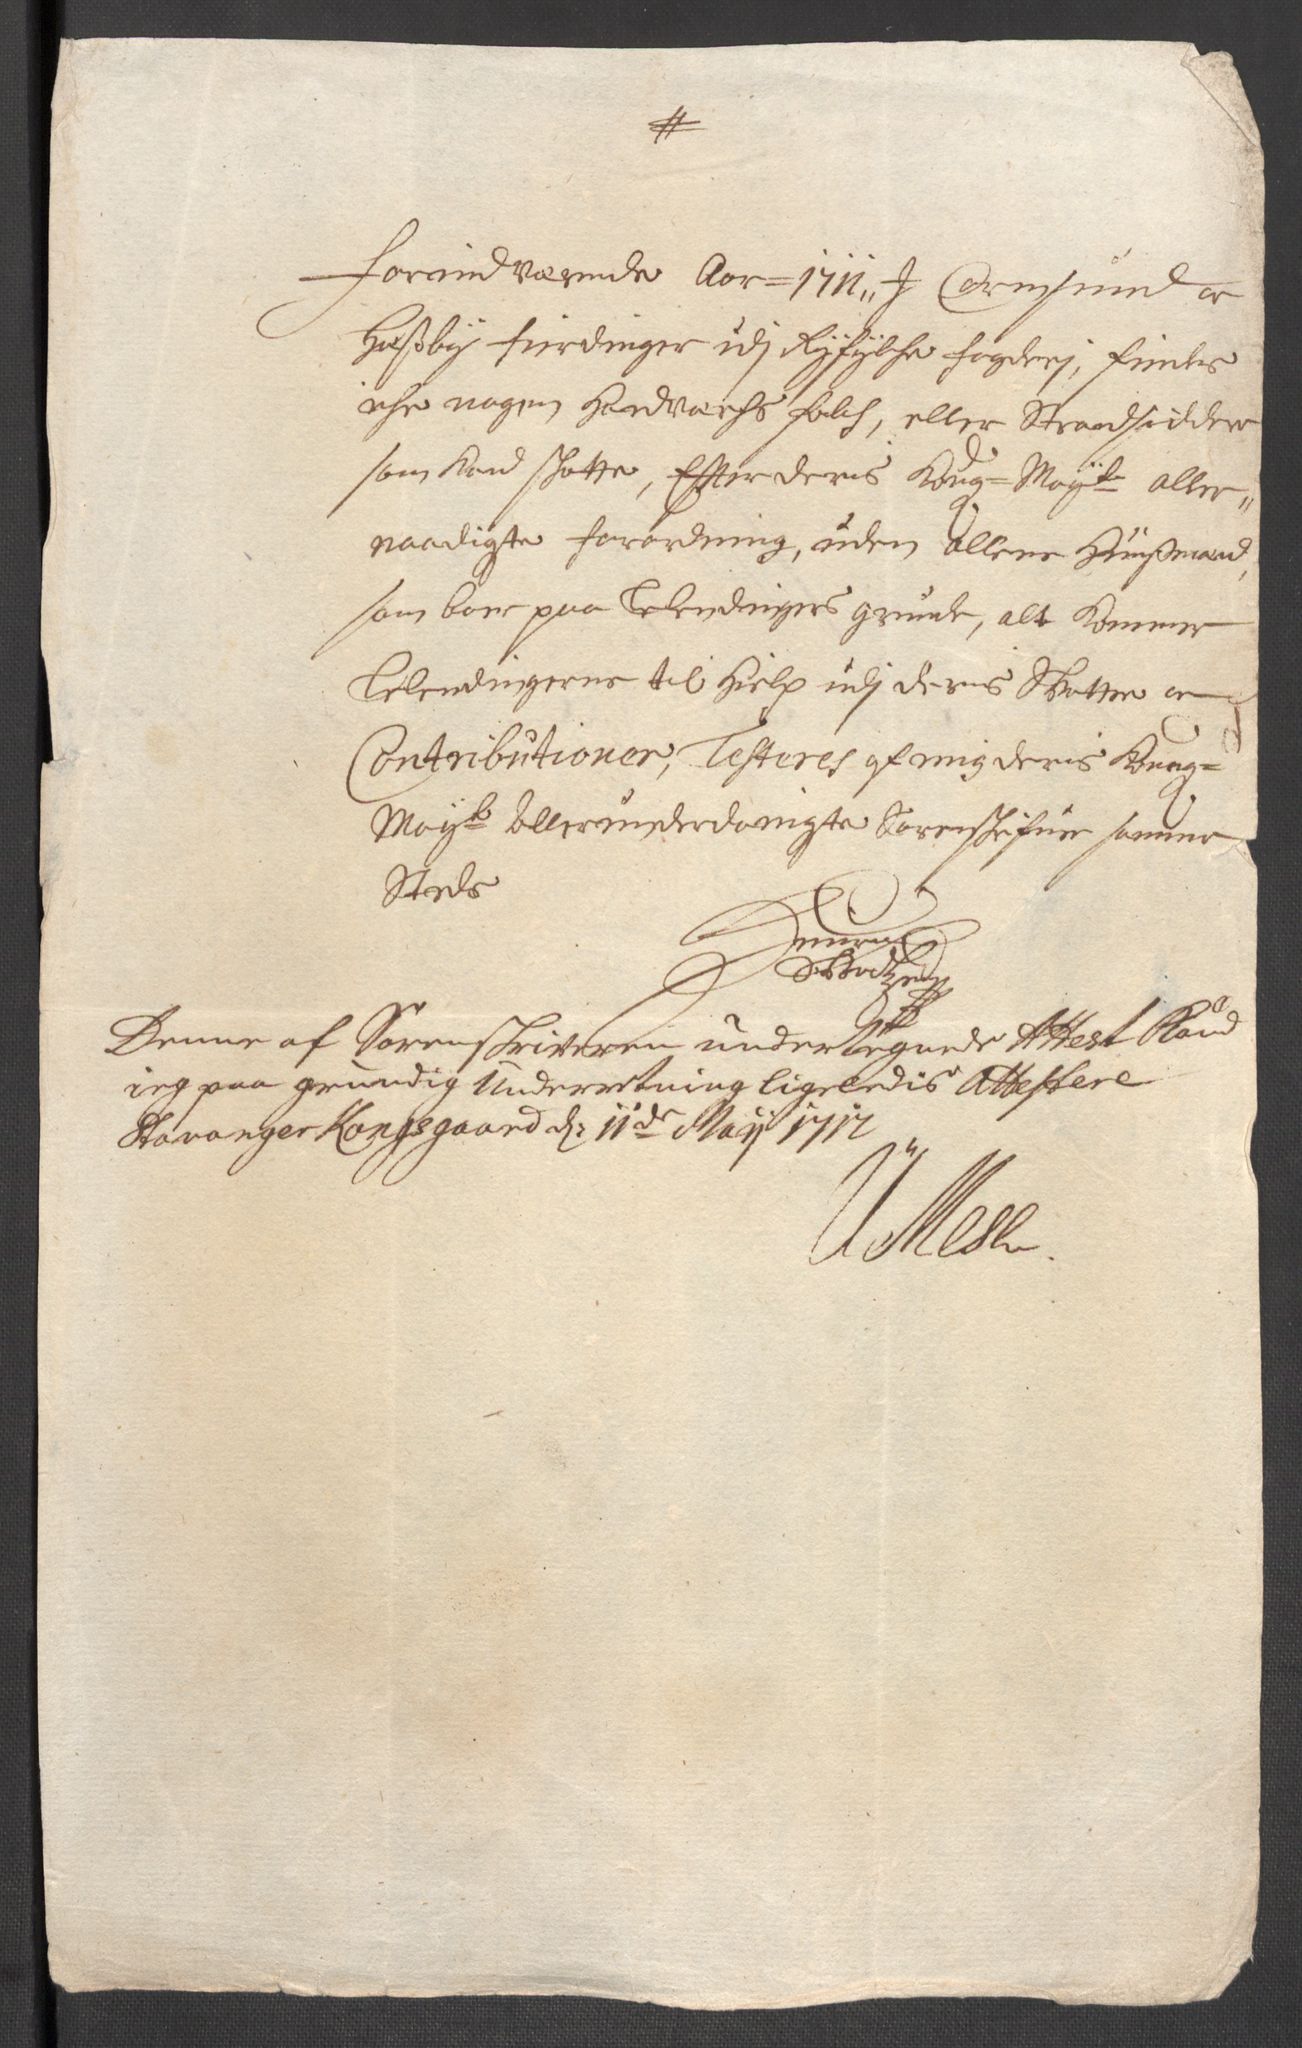 #
Forindværende Aar=1711„ J Carmsund oc
Heßbÿ fierdinger udj Rÿfÿlche fogderj, findes
iche nogen Handverchs folch, eller Strandsiddere
som Kand skatte, Effter deris Kong= Maÿts aller„
naadigste forordning, uden allene Huußmænd,
som boer paa Leilendingers grunde, alt kommer
Leilendingerne til hielp udj deris Skatter oc
Contributioner, Testeres af mig deris Kong=
Maÿts Allerunderdanigste Sorenskrifuer samme
Steds
Denne af Sorenskriveren undertegnede Attest Kand
ieg paa grundig Underretning ligeledis Attestere
Stavanger Kongsgaard d: 11de Maÿ 1712